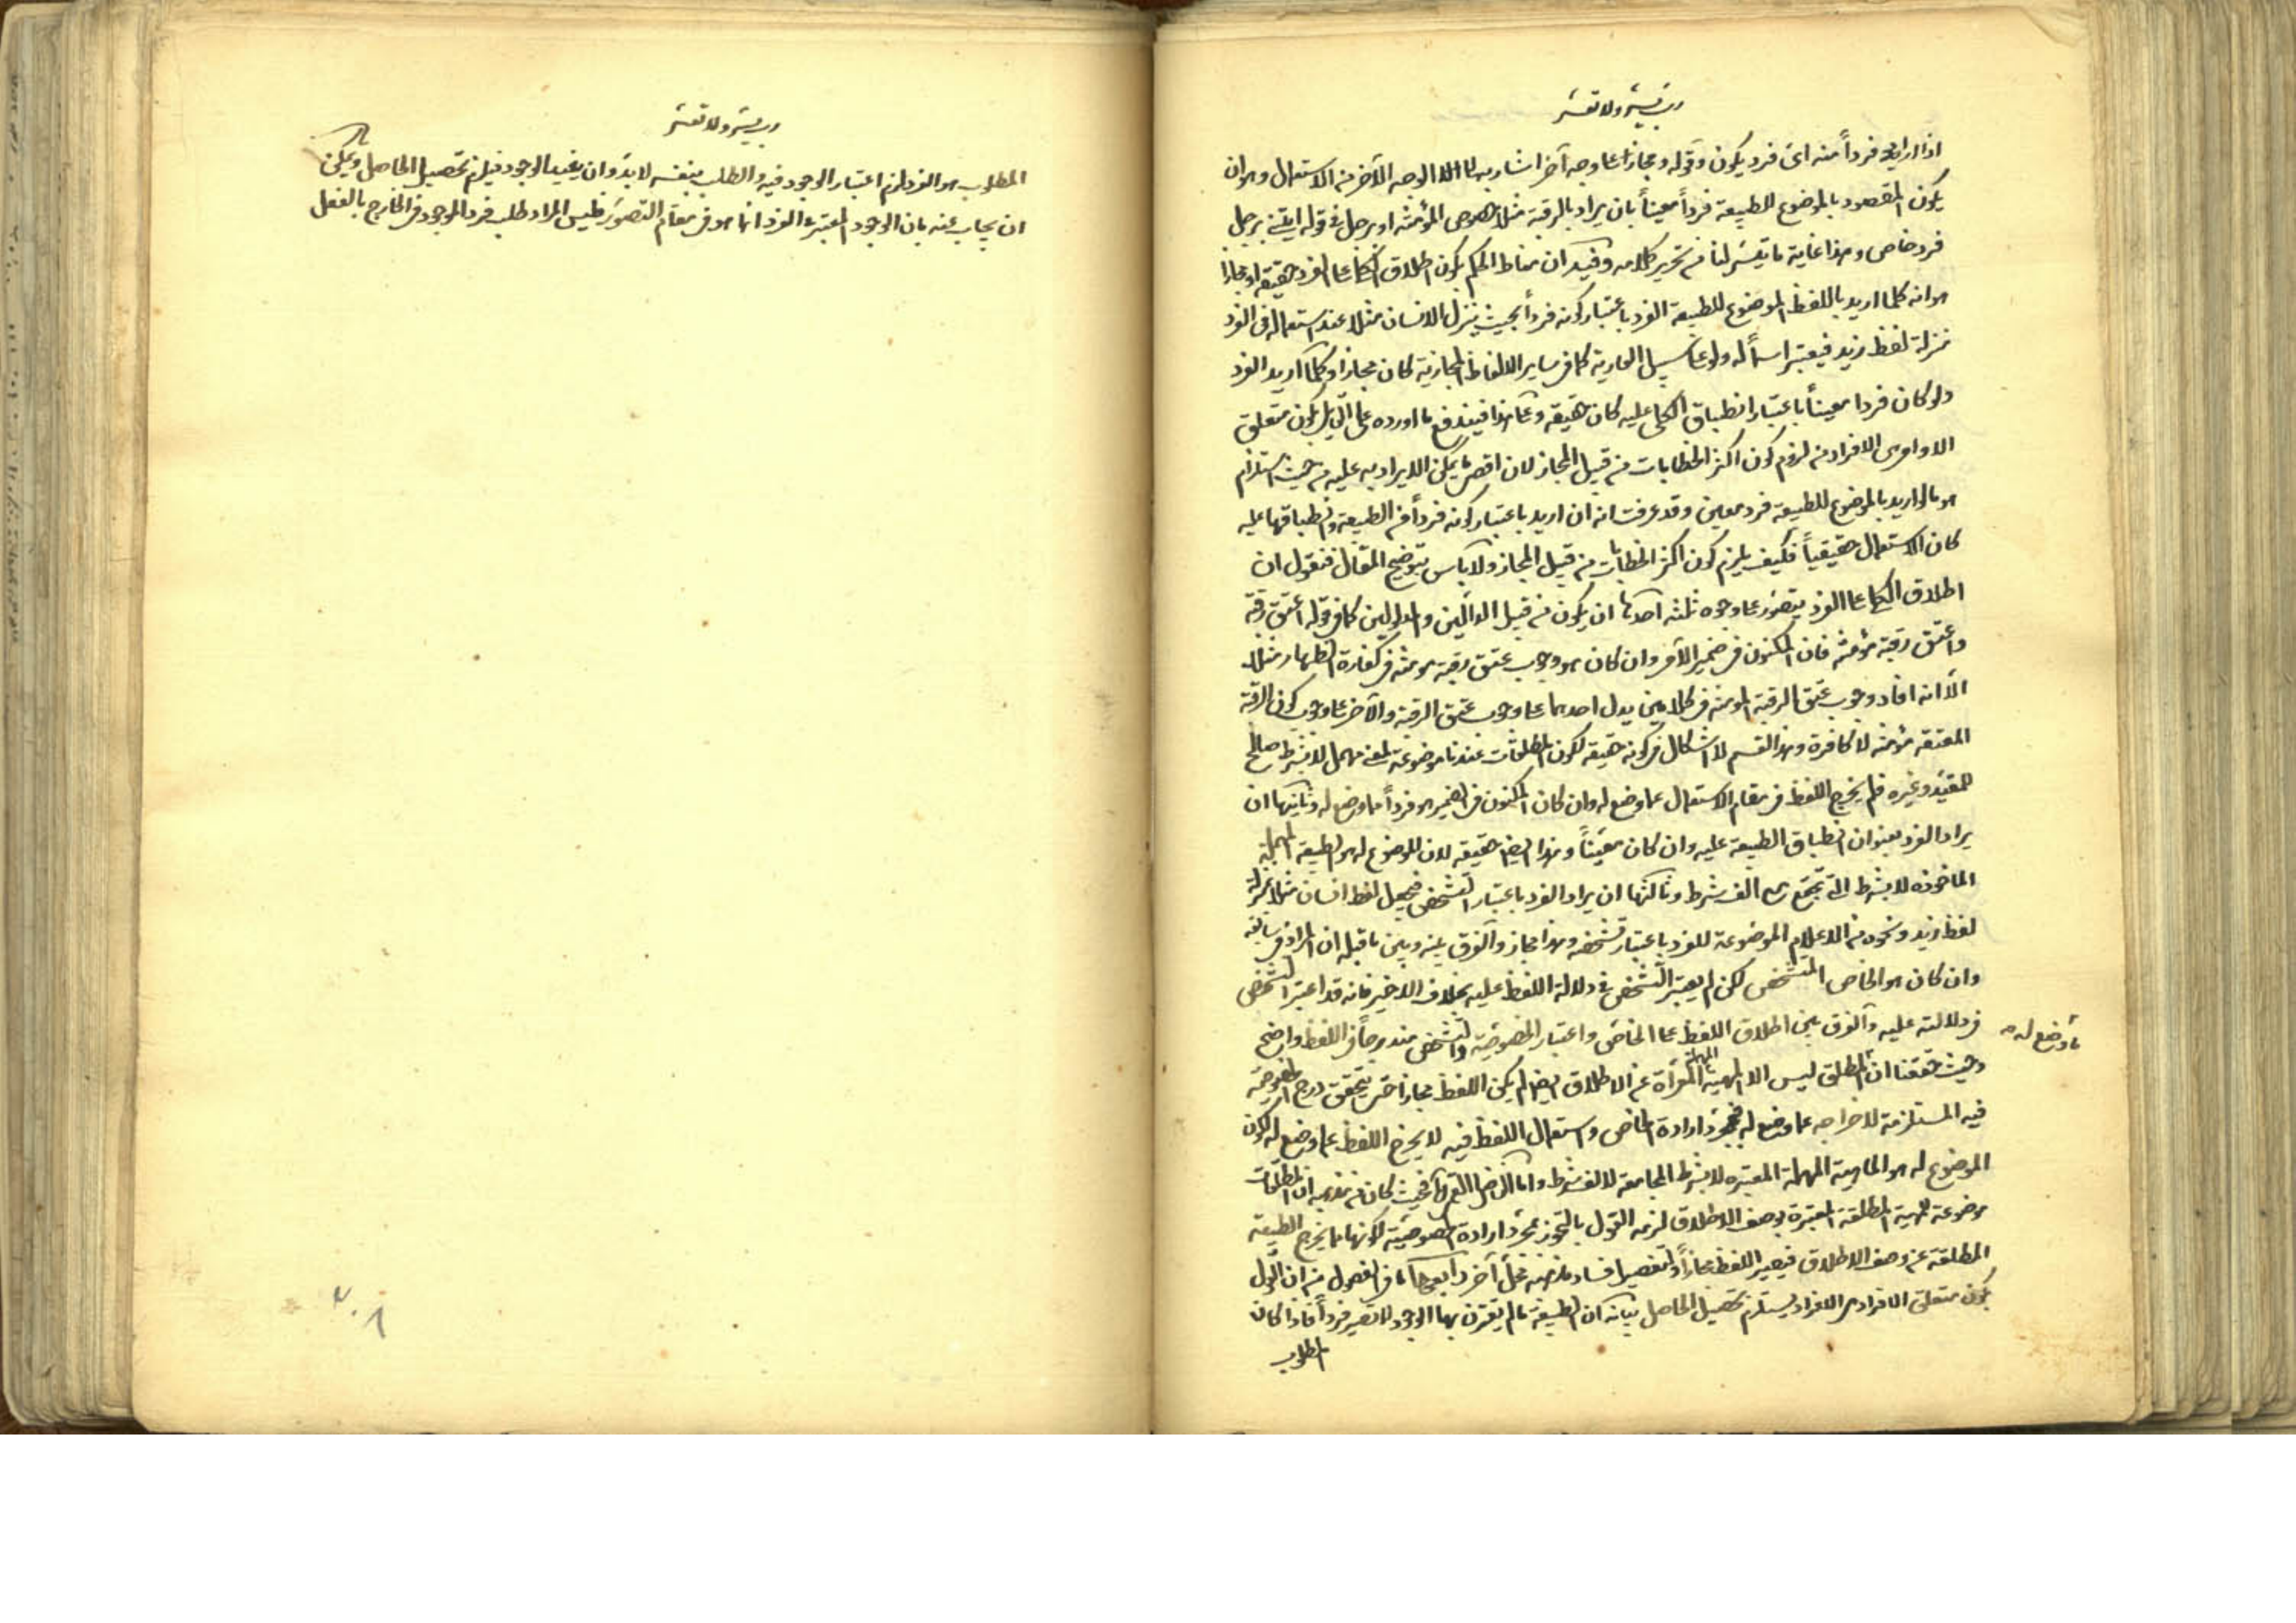 رب يسر ولا تعسر
اذا اراد فردأ منه اى فرد يكون وقوله ومجازا على وجه آخر اشار به الى الوجه الآخر من الاستعمال وهو ان
يكون المقصود بالموضوع للطبيعة فردأ معينأ بان يراد بالرقبة مثلا خصوص المؤمنة او برجل فى قوله ايتنى برجل
فرد خاص وهذا غاية ما تيسر لنا من تحرير كلامه وفيه ان مناط الحكم بكون اطلاق الكلى على الفرد حقيقة او مجازا
هو انه كلما اريد باللفظ الموضوع للطبيعة الفرد باعتبار كونه فردأ بحيث ينزل الانسان مثلا عند استعماله فى الفرد
منزلة لفظ زيد فيعتبر اسمأ له ولو على سبيل العارية كما فى ساير الالفاظ المجازية كان مجازا وكلما اريد الفرد
ولو كان فردا معينأ باعتبار انطباق الكلى عليه كان حقيقة وعلى هذا فيندفع ما اورده على القائل بكون متعلق
الاوامر هى الافراد من لزوم كون اكثر الخطابات من قبيل المجاز لان اقصى ما يمكن الايراد به عليه من حيث استلزام
هو ما لو اريد بالموضوع للطبيعة فرد معين وقد عرفت انه ان اريد باعتبار كونه فردأ من الطبيعة وانطباقها عليه
كان الاستعمال حقيقيأ فكيف يلزم كون اكثر الخطابات من قبيل المجاز ولا بأس بتوضيح المقال فنقول ان
اطلاق الكلى على الفرد يتصور على وجوه ثلثه احدها ان يكون من قبيل الدالين والمدلولين كما فى قوله اعتق رقبة
واعتق رقبة مؤمنة فان المكنون فى ضمير الآمر وان كان هو وجوب عتق رقبة مومنة فى كفارة الظهار مثلا
الا انه افاد وجوب عتق الرقبة المومنة فى كلامين يدل احدهما على وجوب عتق الرقبة والآخر على وجوب كون الرقبة
المعتقه مؤمنه لا كافرة وهذا القسم لا اشكال فى كونه حقيقة لكون المطلقات عندنا موضوعة لمعنى مهمل لا بشرط صالح
للمقيد وغيره فلم يخرج اللفظ فى مقام الاستعمال عما وضع له وان كان المكنون فى الضمير هو فردأ مما وضع له وثانيها ان
يراد الفرد بعنوان انطباق الطبيعة عليه وان كان معينأ وهذا ايضا حقيقة لان الموضوع له هو الطبيعة المهملة
الماخوذه لا بشرط التى تجتمع مع الف شرط وثالثها ان يراد الفرد باعتبار التشخص فيجعل لفظ انسان مثلا بمنزلة
لفظ زيد ونحوه من الاعلام الموضوعة للفرد باعتبار تشخصه وهذا مجاز والفرق بينه وبين ما قبله ان المراد فى سابقه
وان كان هو الخاص المتشخص لكن لم يعتبر التشخص فى دلالة اللفظ عليه بخلاف الاخير فانه قد اعتبر التشخص
فى دلالته عليه والفرق بين اطلاق اللفظ على الخاص واعتبار الخصوصية والتشخص مندرجأ فى اللفظ واضح
ما وضع له
وحيث حققنا ان المطلق ليس الا المهية المهملة المعرأة عن الاطلاق ايضا لم يكن اللفظ مجازا حتى يتحقق درج الخصوصية
فيه المستلزمة لاخراجه عما وضع له فمجرد ارادة الخاص واستعمال اللفظ فيه لا يخرج اللفظ عما وضع له لكون
الموضوع له هو الماهية المهملة المعتبره لا بشرط المجامعة لالف شرط واما الفاضل القمى فحيث كان من مذهبه ان المطلقات
موضوعة للمهية المطلقة المعتبرة بوصف الاطلاق لزمه القول بالتجوز بمجرد ارادة الخصوصية لكونها مما يخرج الطبيعة
المطلقة عن وصف الاطلاق فيصير اللفظ مجازأ وتفصيل فساد مذهبه محل آخر رابعها ما فى الفصول من ان القول
بكون متعلق الاوامر هى الافراد يستلزم تحصيل الحاصل بيانه ان الطبيعة ما لم يقترن بها الوجود لا تصير فردأ فاذا كان
المطلوب
رب يسر ولا تعسر
المطلوب هو الفرد لزم اعتبار الوجود فيه والطلب بنفسه لا بد وان يفيد الوجود فيلزم تحصيل الحاصل ويمكن
ان يجاب عنه بان الوجود المعتبر فى الفرد انما هو فى مقام التصور فليس المراد طلب فرد الموجود فى الخارج بالفعل